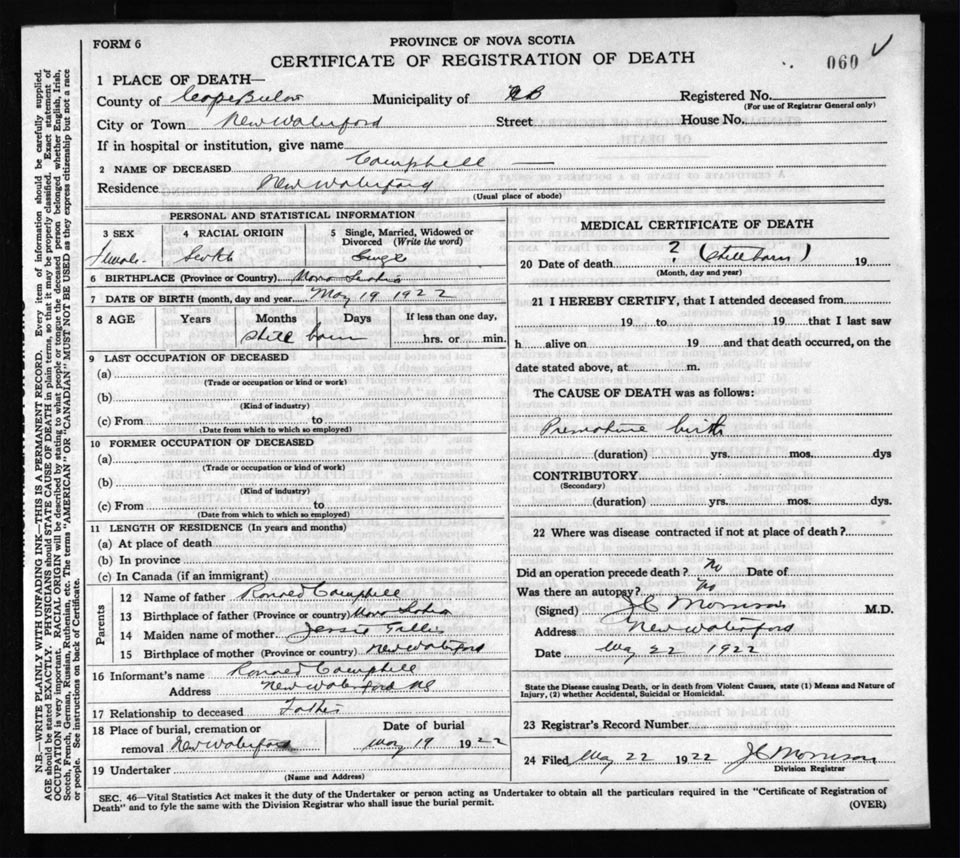 FORM 6
PROVINCE OF NOVA SCOTIA
CERTIFICATE OF REGISTRATION OF DEATH
060
1 PLACE OF DEATH—
County of Cape Breton Municipality of Registered No.
(For use of Registrar General only)
City or Town New Waterford Street House No.
If in hospital or institution, give name
2 NAME OF DECEASED Campbell —
Residence New Waterford
(Usual place of abode)
PERSONAL AND STATISTICAL INFORMATION
3 SEX 4 RACIAL ORIGIN 5 Single, Married, Widowed or Divorced (Write the word)
Female Scotch Single
6 BIRTHPLACE (Province or Country) Nova Scotia
7 DATE OF BIRTH (month, day and year) May 19 1922
8 AGE Years Months Days If less than one day,
Still born hrs. or min.
9 LAST OCCUPATION OF DECEASED
(a)
(Trade or occupation or kind or work)
(b)
(Kind of industry)
(c) From to
(Date from which to which so employed)
10 FORMER OCCUPATION OF DECEASED
(a)
(Trade or occupation or kind of work)
(b)
(Kind of industry)
(c) From to
(Date from which to which so employed)
11 LENGTH OF RESIDENCE (In years and months)
(a) At place of death
(b) In province
(c) In Canada (if an immigrant)
Parents
12 Name of father Ronald Campbell
13 Birthplace of father (Province or country) Nova Scotia
14 Maiden name of mother Jessie Gillis
15 Birthplace of mother (Province or country) New Waterford
16 Informant's name Ronald Campbell
Address New Waterford NS
17 Relationship to deceased Father
18 Place of burial, cremation or removal New Waterford Date of burial May 19 1922
19 Undertaker
(Name and Address)
MEDICAL CERTIFICATE OF DEATH
20 Date of death ? (Still born) 19
(Month, day and year)
21 I HEREBY CERTIFY, that I attended deceased from
19 to 19 that I last saw
h alive on 19 and that death occurred, on the
date stated above, at m.
The CAUSE OF DEATH was as follows:
Premature birth
(duration) yrs. mos. dys
CONTRIBUTORY
(Secondary)
(duration) yrs. mos. dys.
22 Where was disease contracted if not at place of death?
Did an operation precede death? No Date of
Was there an autopsy? No
(Signed) J C Morrison M.D.
Address New Waterford
Date May 22 1922
State the Disease causing Death, or in death from Violent Causes, state (1) Means and Nature of
Injury, (2) whether Accidental, Suicidal or Homicidal.
23 Registrar's Record Number
24 Filed May 22 1922 J C Morrison
Division Registrar
SEC. 46—Vital Statistics Act makes it the duty of the Undertaker or person acting as Undertaker to obtain all the particulars required in the "Certificate of Registration of
Death" and to fyle the same with the Division Registrar who shall issue the burial permit.
(OVER)
N.B.—WRITE PLAINLY WITH UNFADING INK—THIS IS A PERMANENT RECORD. Every item of information should be carefully supplied.
AGE should be stated EXACTLY. PHYSICIANS should STATE CAUSE OF DEATH in plain terms, so that it may be properly classified. Exact statement of
OCCUPATION is very important. RACIAL ORIGIN will be described by stating to what people or tongue the deceased person belonged whether English, Irish,
Scotch, French, German, Russian, Ruthenian, etc. The terms "AMERICAN" OR "CANADIAN" MUST NOT BE USED as they express citizenship but not a race
or people. See instructions on back of Certificate.